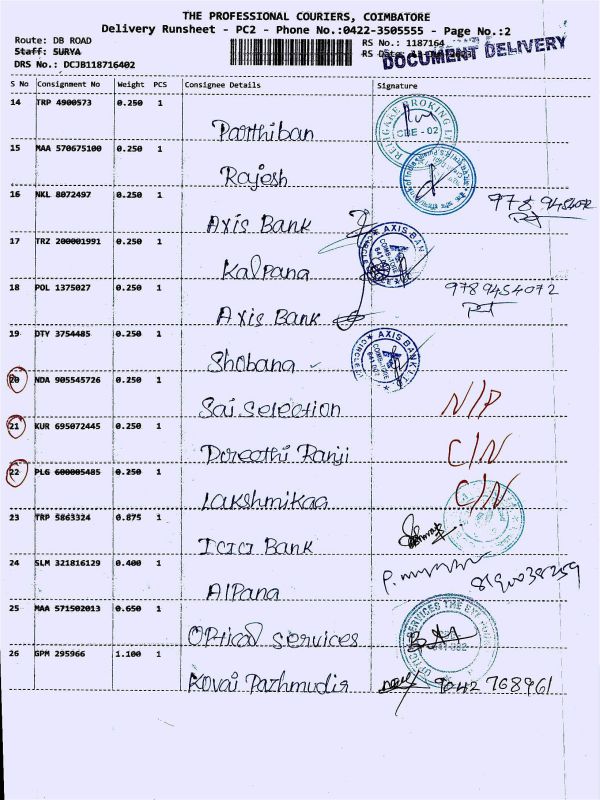 THE PROFESSIONAL COURIERS, COIMBATORE
Delivery Runsheet - PC2 - Phone No.:0422-3505555 - Page No.:2
Route: DB ROAD RS No.: 1187164
Staff: SURYA RS Date:
DOCUMENT DELIVERY
DRS No.: DCJB118716402
S No Consignment No Weight PCS Consignee Details Signature
14 TRP 4900573 0.250 1 Parthiban
RELIGARE BROKING CBE - 02
15 MAA 570675100 0.250 1 Rajesh
16 NKL 8072497 0.250 1 Axis Bank
17 TRZ 200001991 0.250 1 Kalpana
AXIS BANK CIRCLE
18 POL 1375027 0.250 1 Axis Bank 9789454072
19 DTY 3754485 0.250 1 Shobana
AXIS BANK CIRCLE 641 002
20 NDA 905545726 0.250 1 Sai.Selection N/P
21 KUR 695072445 0.250 1 Ranji C/N
22 PLG 600005485 0.250 1 Lakshmikaa C/N
23 TRP 5863324 0.875 1 ICICI Bank
24 SLM 321816129 0.400 1 Alpana 8190038259
25 MAA 571502013 0.650 1 Optical Services
SERVICES THE EYE
26 GPM 295966 1.100 1 Kovai Pazhmudir 9042 768961